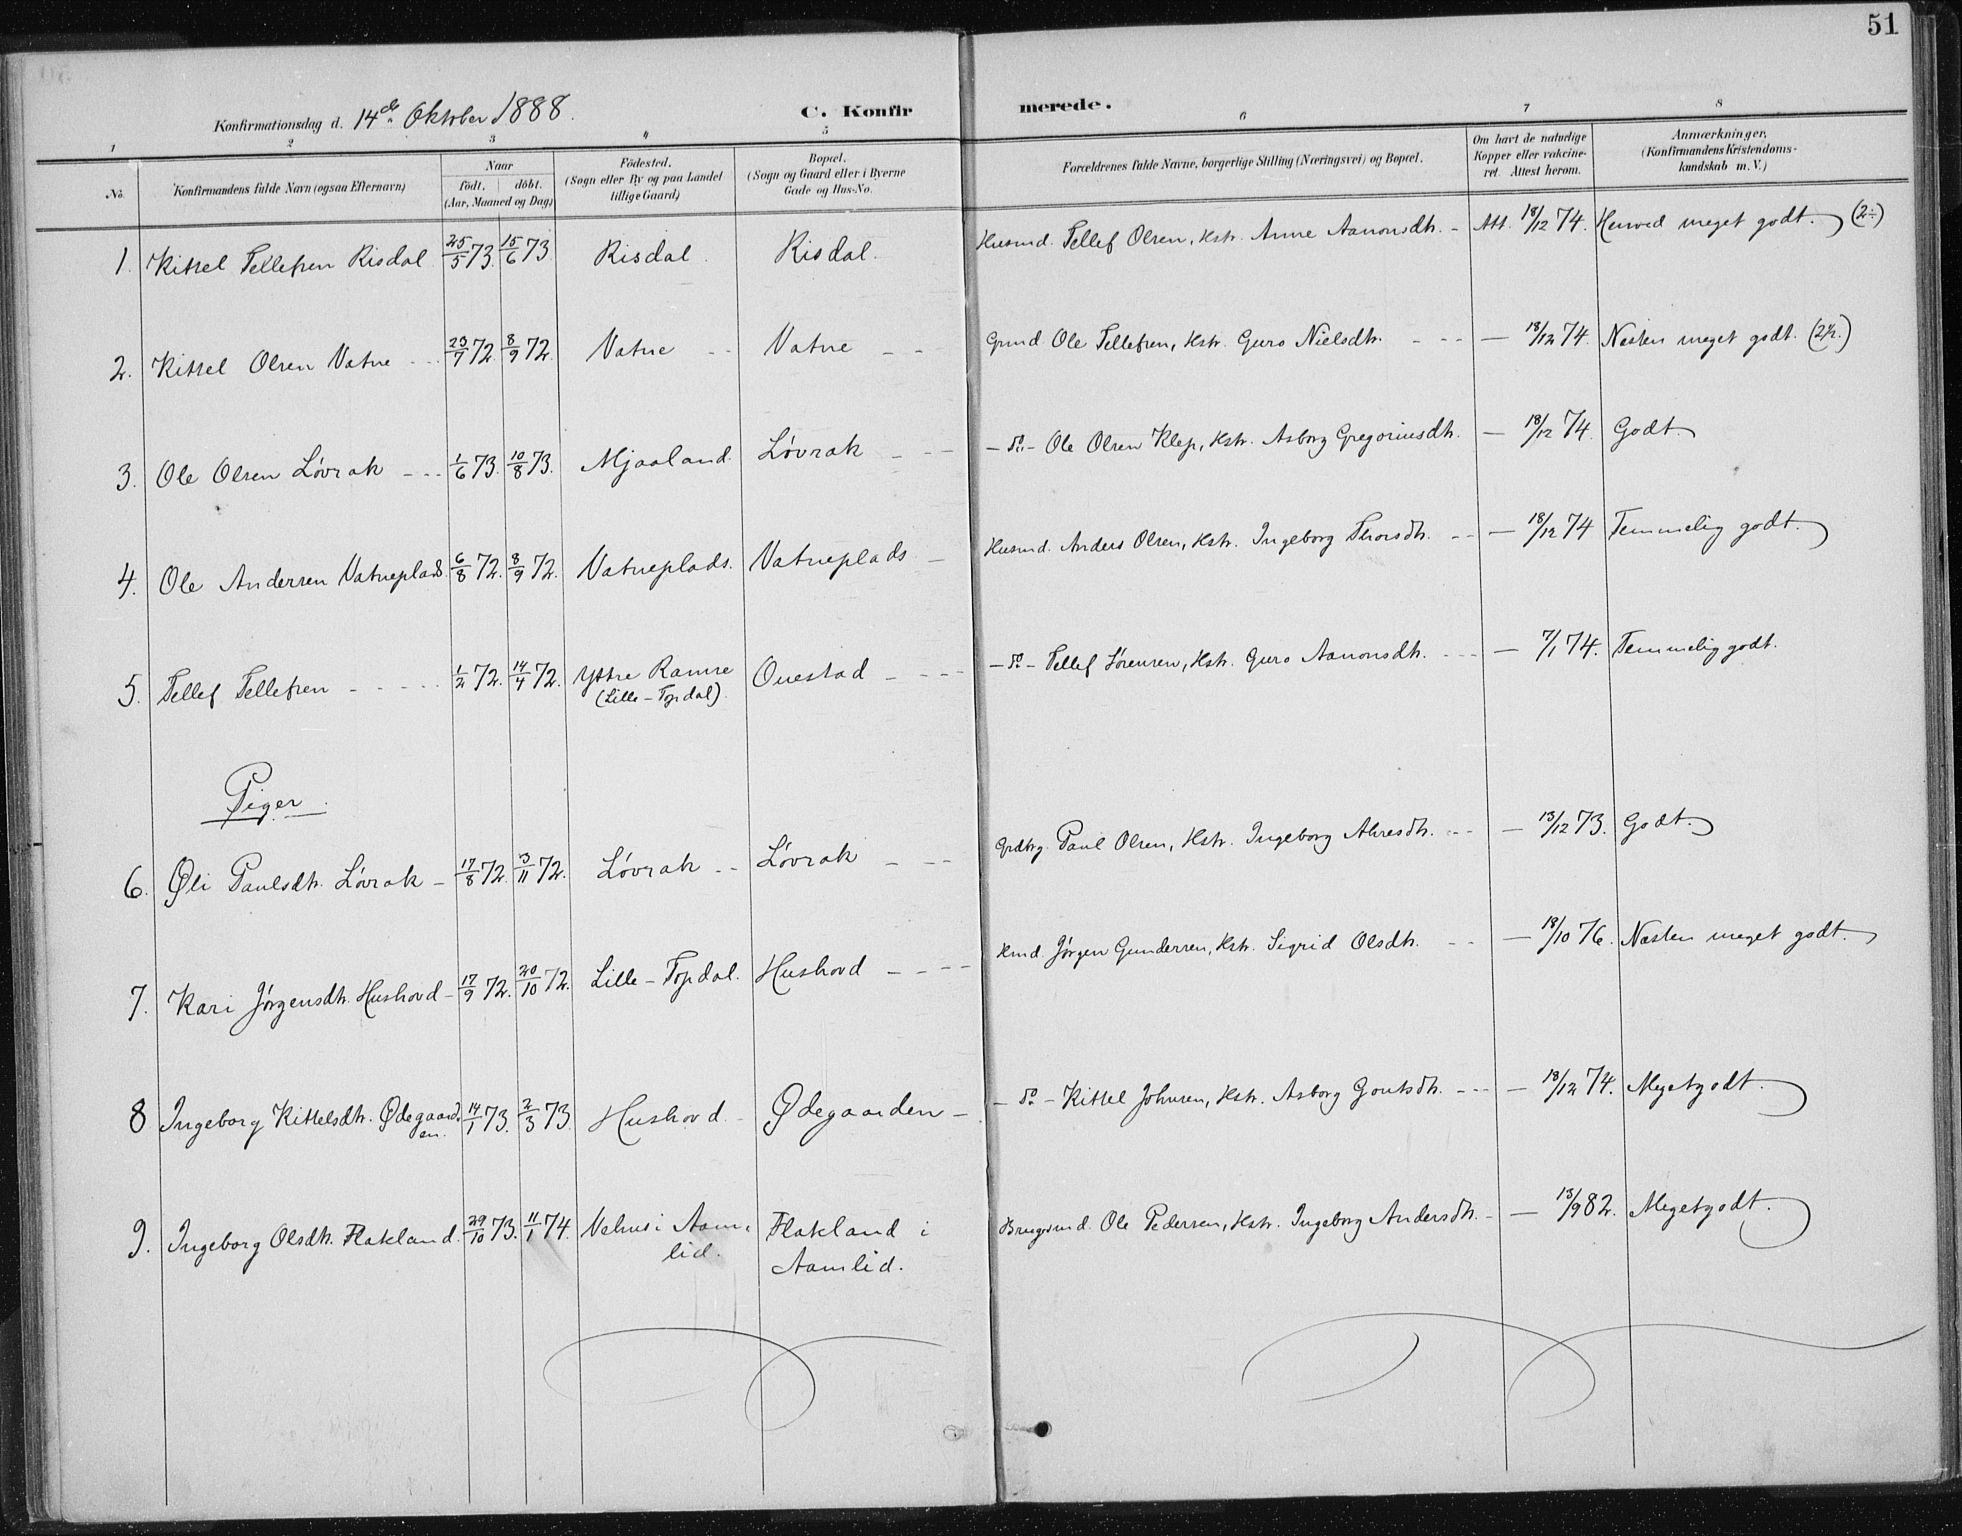 51
Konfirmationsdag d. 14de Oktober 1888. C. Konfir merede.
1 2 3 4 5 6 7 8
No. Konfirmandens fulde Navn (ogsaa Efternavn) Naar födt. döbt. (Aar, Maaned og Dag) Födested. (Sogn eller By og paa Landet tillige Gaard) Bopæl. (Sogn og Gaard eller i Byerne Gade og Hus-No. Forældrenes fulde Navne, borgerlige Stilling (Næringsvei) og Bopæl. Om havt de naturlige Kopper eller vakcineret. Attest herom. Anmærkninger. (Konfirmandens Kristendomskundskab m. V.)
1. Kittel Tellefsen Risdal 25/5 73. 15/6 73 Risdal. Risdal. Husmd. Tellef Olsen, Kstr. Anne Aanonsdtr. - Att. 18/12 74. Henved meget godt. (2÷)
2. Kittel Olsen Vatne --- 23/7 72. 8/9 72. Vatne -- Vatne --- Grmd Ole Tellefsen, Kstr. Guro Nielsdtr. --- — 18/12 74. Næsten meget godt. (2½.)
3. Ole Olsen Løvrak --- 1/6 73. 10/8 73. Mjaaland. Løvrak --- - do - Ole Olsen Klep, Kstr. Asborg Gregoriusdtr. — 18/12 74. Godt.
4. Ole Andersen Vatneplads. 6/8 72. 8/9 72. Vatneplads. Vatneplads - Husmd. Anders Olsen, Kstr. Ingeborg Thorsdtr. -- — 18/12 74 Temmelig godt.
5. Tellef Tellefsen ----- 1/2 72. 14/4 72. Yttre Ramse Ouestad ---- - do - Tellef Sørensen, Kstr. Guro Aanonsdtr. --- — 7/1 74. Temmelig godt.
(Lille-Topdal)
Piger.
6. Øli Paulsdtr. Løvrak - 17/8 72. 3/11 72. Løvrak -- Løvrak --- Grdbrg. Paul Olsen, Kstr. Ingeborg Alvesdtr. --- — 13/12 73. Godt.
7. Kari Jørgensdtr. Hushovd - 17/9 72. 20/10 72. Lille-Topdal. Hushovd ---- Kmd. Jørgen Gundersen, Kstr. Sigrid Olsdtr. -- — 18/10 76. Næsten meget godt.
8 Ingeborg Kittelsdtr. Ødegaard- 14/1 73. 2/3 73. Hushovd - Ødegaarden - - do - Kittel Johnsen, Kstr. Asborg Goutsdtr. --- — 18/12 74. Megetgodt.
en.
9. Ingeborg Olsdtr. Flakland. 29/10 73. 11/1 74. Vehus i Aam- Flakland i Brugsmd. Ole Pedersen, Kstr. Ingeborg Andersdtr. - — 13/9 82. Megetgodt.
lid. Aamlid.